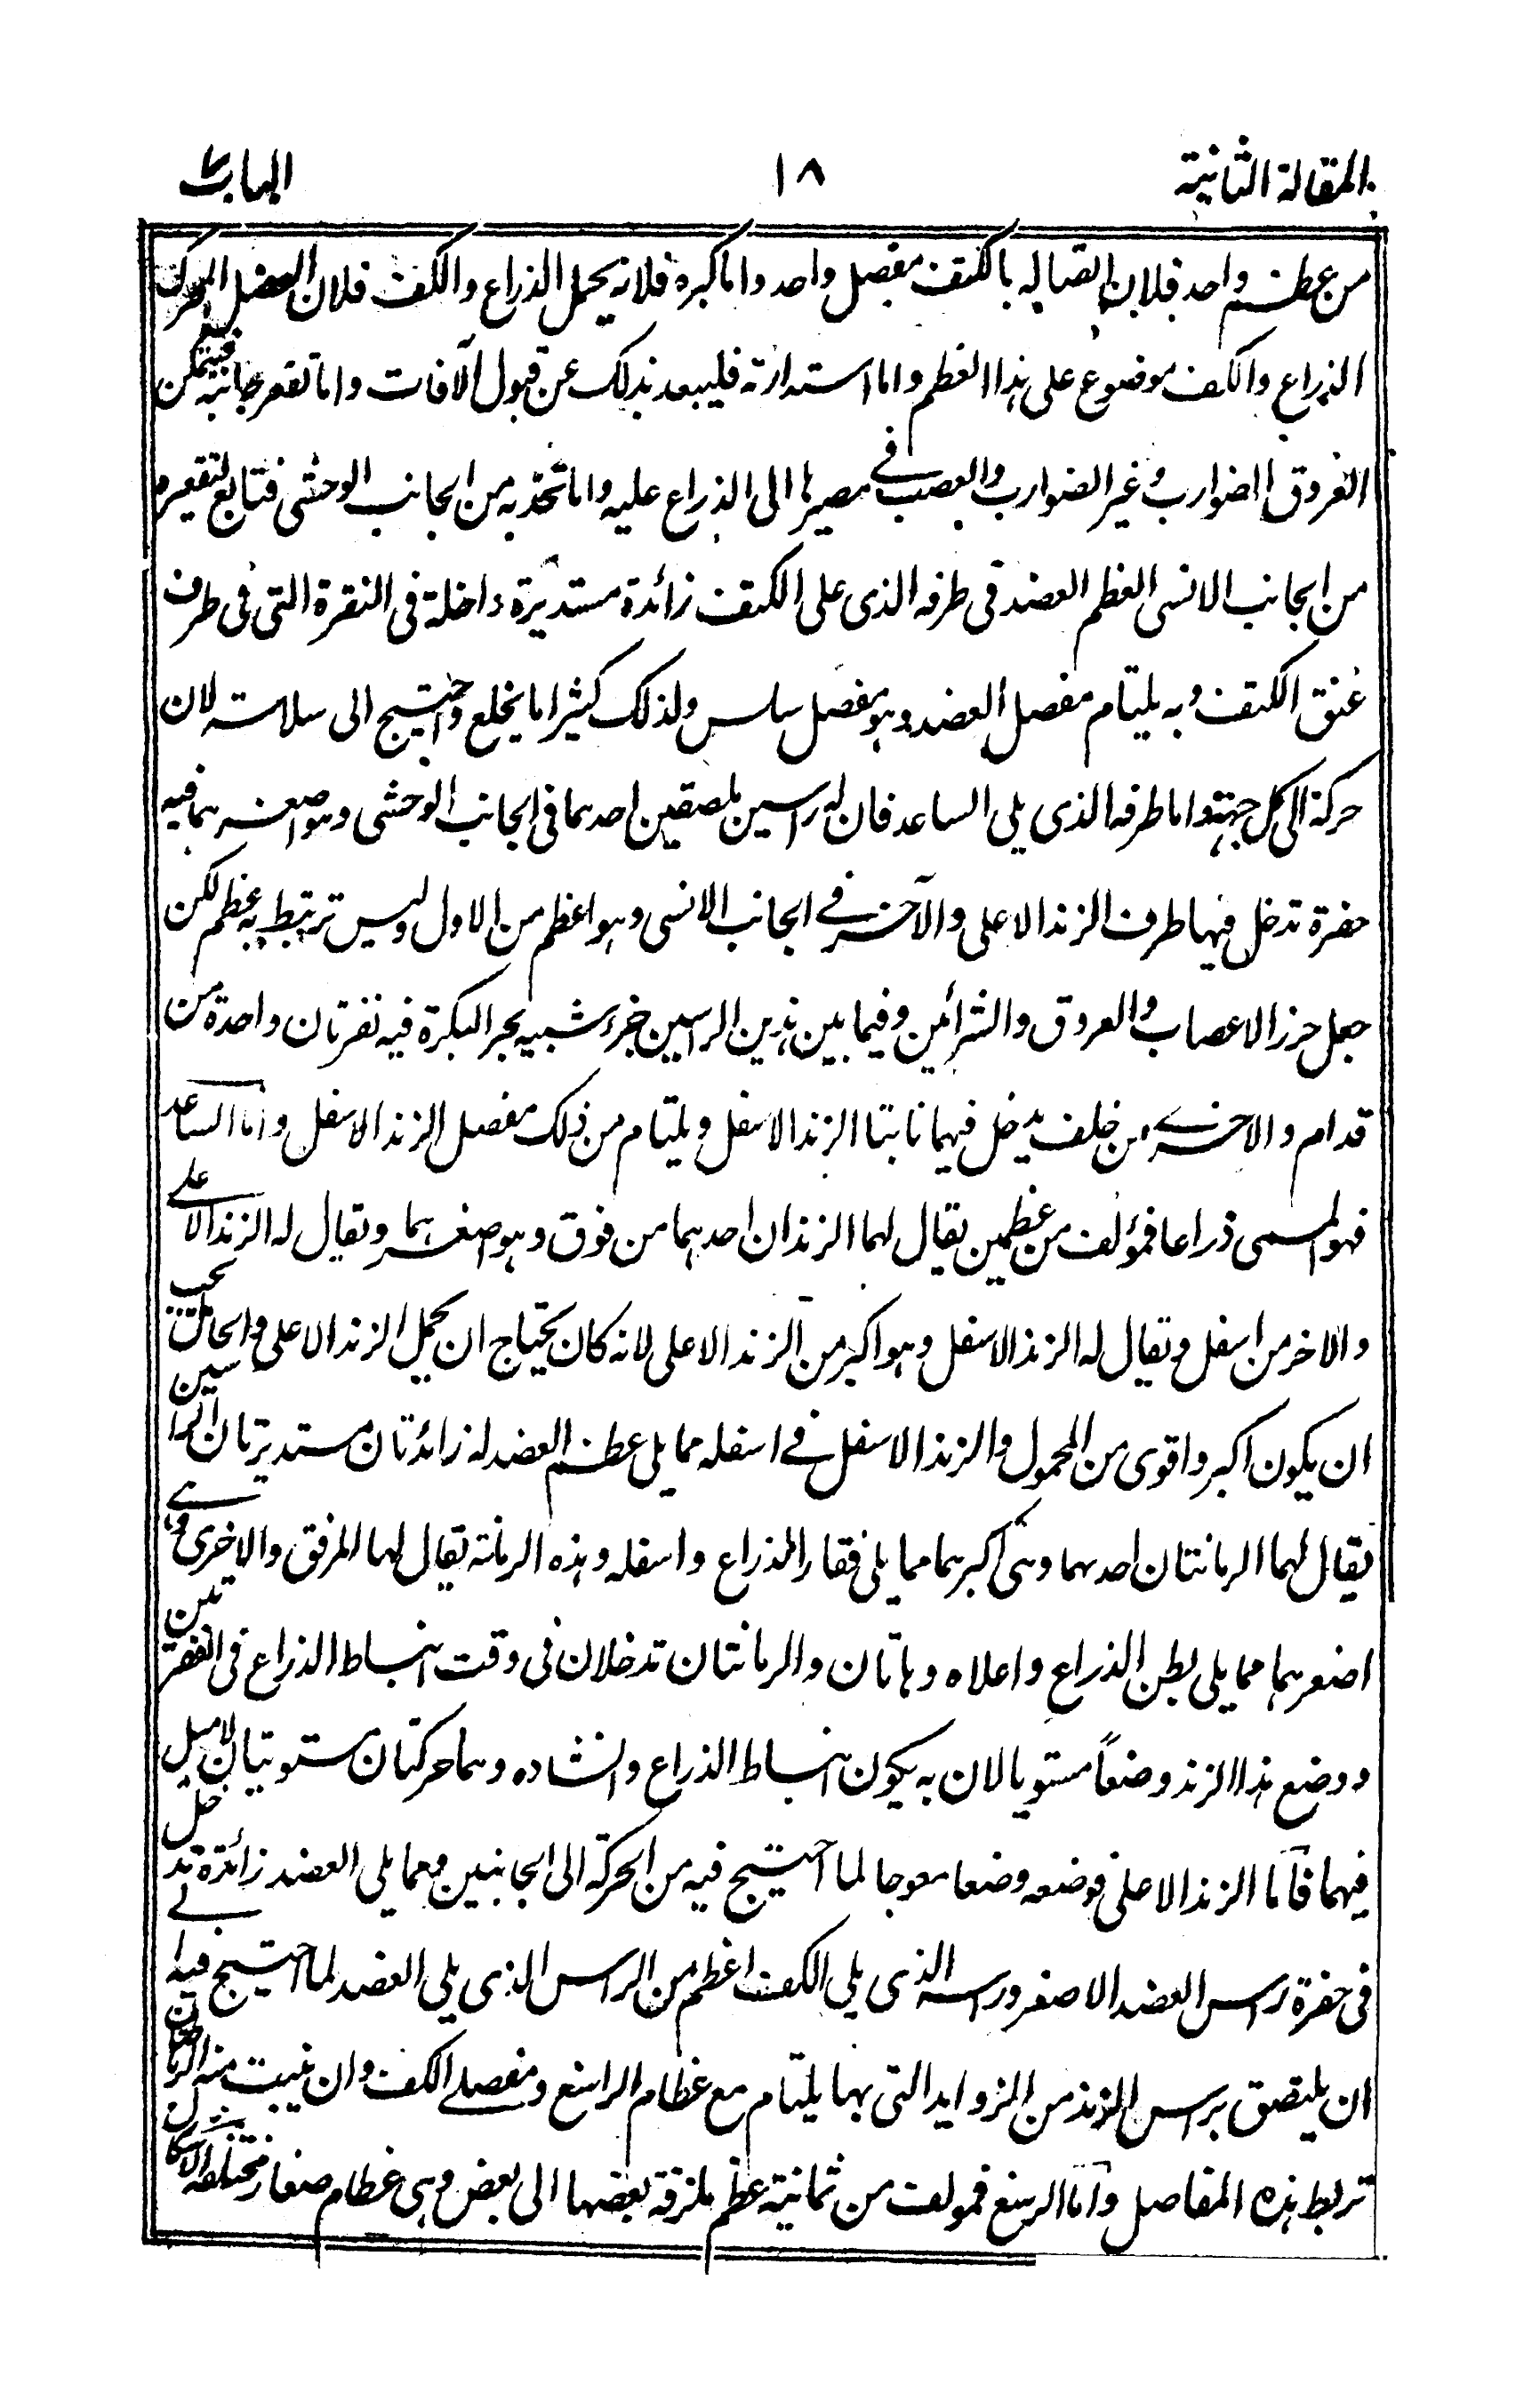 المقالة الثانية ١٨ الباب
من عظم واحد فلان اتصاله بالكتف مفصل واحد واما كبره فلانه يحمل الذراع والكف فلان العضل المحرك
الذراع والكف موضوع على هذا العظم واما استدارته فليبعد بذلك عن قبول الآفات واما تقعر جانبه فيتمكن
العروق الضوارب وغير الضوارب والعصب في مصيرها الى الذراع عليه واما تحدبه من الجانب الوحشي فتابع لتقعيره
من الجانب الانسي العظم العضد في طرفه الذى على الكتف زائدة مستديرة داخلة فى النقرة التى فى طرف
عنق الكتف وبه يلتيام مفصل العضد وهو مفصل سلس ولذلك كثيرا ما يخلع واحتيج الى سلاسته لان
حركة الى كل جهة واما طرفه الذى يلي الساعد فان له راسين ملصقين احدهما فى الجانب الوحشى وهو اصغرهما فيه
حفرة تدخل فيها طرف الزند الاعلى والآخر في الجانب الانسى وهو اعظم من الاول وليس ترتبط به عظم لكن
جعل حرز الاعصاب والعروق والشرائين وفيما بين هذين الراسين جزء شبيه بحز البكرة فيه نقرتان واحدة من
قدام والاخرى من خلف يدخل فيهما نابتا الزند الاسفل ويلتيام من ذلك مفصل الزند الاسفل واما الساعد
فهو المسمى ذراعا فمؤلف من عظمين يقال لهما الزندان احدهما من فوق وهو اصغرهما ويقال له الزند الاعلى
والاخر من اسفل ويقال له الزند الاسفل وهو اكبر من الزند الاعلى لانه كان يحتاج ان يحمل الزند الاعلى والحامل يجب
ان يكون اكبر واقوى من المحمول والزند الاسفل في اسفله مما يلى عظم العضد له زائدتان مستديرتان الراسين
يقال لهما الرمانتان احدهما وهى اكبرهما مما يلى فقار الذراع واسفله وهذه الرمانة يقال لها المرفق والاخرى وهى
اصغرهما مما يلى بطن الذراع واعلاه وهاتان والرمانتان تدخلان فى وقت انبساط الذراع فى النقرتين
ووضع هذا الزند وضعاً مستويا لان به يكون انبساط الذراع وانشاده وهما حركتان مستويتان لا ميل
فيهما فاما الزند الاعلى فوضعه وضعا معوجا لما احتيج فيه من الحركة الى الجانبين ومما يلى العضد زائدة تدخل
فى حفرة راس العضد الاصغر وراسه الذى يلى الكف اعظم من الراس الذى يلى العضد لما احتيج فيه الى
ان يلتصق براس الزند من الزوايد التى بها يلتيام مع عظام الراسغ ومفصلے الكف وان ينبت منه الرباطات
تربط هذه المفاصل واما الرسغ فمولف من ثمانية عظم ملزقة بعضها الى بعض وهى عظام صغار مختلفة الاشكال